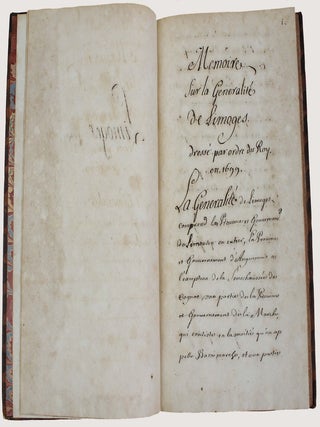 Limoges
1.
Mémoire
sur la Généralité
de Limoges
dressé par ordre du Roy
en 1699
La Généralité de Limoges
comprend la Province et Gouvernement
de Limousin en entier, la Province
et Gouvernement d'Angoumois a
l'exception de la Seneschaussée de
Cognac, une partie de la Province
et Gouvernement de la Marche,
qui consiste en la moitié qu'on ap
pelle Basse marche, et une partie